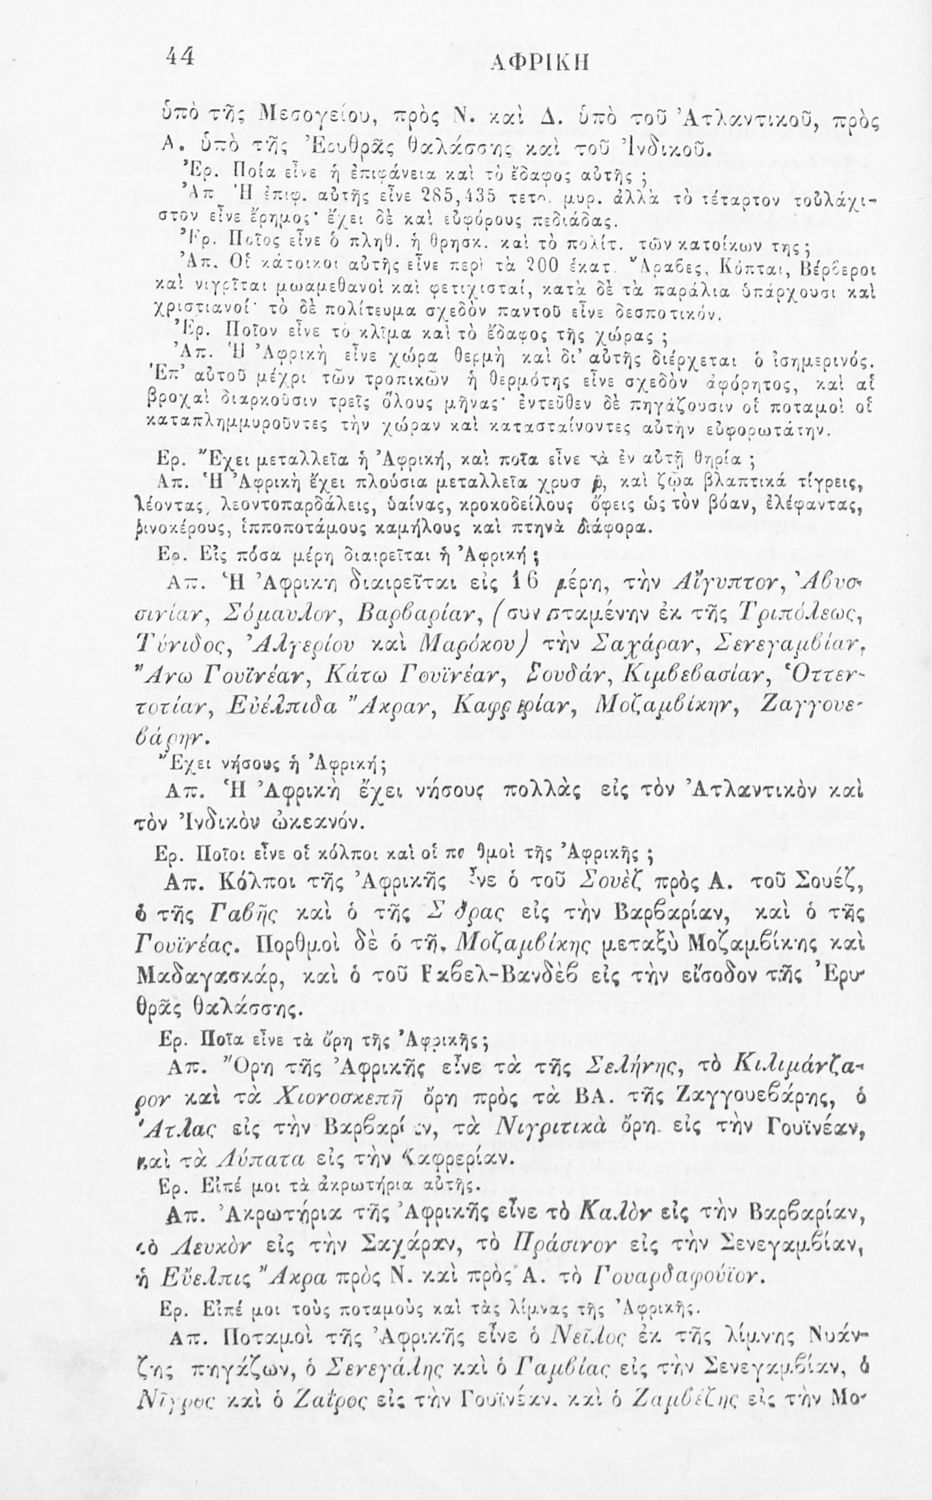 44 ΑΦΡΙΚΗ
ὑπὸ τῆς Μεσογείου, πρὸς Ν. καὶ Δ. ὑπὸ τοῦ Ἀτλαντικοῦ, πρὸς
Α. ὑπὸ τῆς Ἐρυθρᾶς θαλάσσης καὶ τοῦ Ἰνδικοῦ.
Ἐρ. Ποία εἶνε ἡ ἐπιφάνεια καὶ τὸ ἔδαφος αὐτῆς ;
Ἀπ Ἡ ἐπιφ. αὐτῆς εἶνε 285,435 τετρ. μυρ. ἀλλὰ τὸ τέταρτον τοὐλάχι-
στον εἶνε ἔρημος· ἔχει δὲ καὶ εὐφόρους πεδιάδας.
Ἐρ. Ποῖος εἶνε ὁ πληθ. ἡ θρησκ. καὶ τὸ πολίτ. τῶν κατοίκων της ;
Ἀπ. Οἱ κάτοικοι αὐτῆς εἶνε περὶ τὰ 200 ἑκατ. Ἄραβες, Κόπται, Βέρβεροι
καὶ νιγρῖται μωαμεθανοὶ καὶ φετιχισταί, κατὰ δὲ τὰ παράλια ὑπάρχουσι καὶ
χριστιανοί· τὸ δὲ πολίτευμα σχεδὸν παντοῦ εἶνε δεσποτικόν.
Ἐρ. Ποῖον εἶνε τὸ κλῖμα καὶ τὸ ἔδαφος τῆς χώρας ;
Ἀπ. Ἡ Ἀφρικὴ εἶνε χώρα θερμὴ καὶ δι' αὐτῆς διέρχεται ὁ ἰσημερινός.
Ἐπ' αὐτοῦ μέχρι τῶν τροπικῶν ἡ θερμότης εἶνε σχεδὸν ἀφόρητος, καὶ αἱ
βροχαὶ διαρκοῦσιν τρεῖς ὅλους μῆνας· ἐντεῦθεν δὲ πηγάζουσιν οἱ ποταμοὶ οἱ
καταπλημμυροῦντες τὴν χώραν καὶ κατασταίνοντες αὐτὴν εὐφορωτάτην.
Ερ. Ἔχει μεταλλεῖα ἡ Ἀφρική, καὶ ποῖα εἶνε τὰ ἐν αὐτῇ θηρία ;
Απ. Ἡ Ἀφρικὴ ἔχει πλούσια μεταλλεῖα χρυσ καὶ ζῷα βλαπτικά τίγρεις,
λέοντας, λεοντοπαρδάλεις, ὑαίνας, κροκοδείλους ὄφεις ὡς τὸν βόαν, ἐλέφαντας,
ῥινοκέρους, ἱπποποτάμους καμήλους καὶ πτηνὰ διάφορα.
Ερ. Εἰς πόσα μέρη διαιρεῖται ἡ Ἀφρική ;
Απ. Ἡ Ἀφρικὴ διαιρεῖται εἰς 16 μέρη, τὴν Αἴγυπτον, Ἀβυσ-
σινίαν, Σόμαυλον, Βαρβαρίαν, (συνισταμένην ἐκ τῆς Τριπόλεως,
Τύνιδος, Ἀλγερίου καὶ Μαρόκου) τὴν Σαχάραν, Σενεγαμβίαν,
Ἄνω Γουϊνέαν, Κάτω Γουϊνέαν, Σουδάν, Κιμβεβασίαν, Ὁττεν-
τοτίαν, Εὐέλπιδα Ἄκραν, Καφρερίαν, Μοζαμβίκην, Ζαγγουε-
βάρην.
Ἔχει νήσους ἡ Ἀφρική;
Απ. Ἡ Ἀφρικὴ ἔχει νήσους πολλὰς εἰς τὸν Ἀτλαντικὸν καὶ
τὸν Ἰνδικὸν ὠκεανόν.
Ερ. Ποῖοι εἶνε οἱ κόλποι καὶ οἱ πορθμοὶ τῆς Ἀφρικῆς ;
Απ. Κόλποι τῆς Ἀφρικῆς εἶνε ὁ τοῦ Σουὲζ πρὸς Α. τοῦ Σουέζ,
ὁ τῆς Γαβῆς καὶ ὁ τῆς Σύδρας εἰς τὴν Βαρβαρίαν, καὶ ὁ τῆς
Γουϊνέας. Πορθμοὶ δὲ ὁ τῆς Μοζαμβίκης μεταξὺ Μοζαμβίκης καὶ
Μαδαγασκάρ, καὶ ὁ τοῦ Βαβελ-Βανδὲβ εἰς τὴν εἴσοδον τῆς Ἐρυ-
θρᾶς θαλάσσης.
Ερ. Ποῖα εἶνε τὰ ὄρη τῆς Ἀφρικῆς ;
Απ. Ὄρη τῆς Ἀφρικῆς εἶνε τὰ τῆς Σελήνης, τὸ Κιλιμάνζα-
ρον καὶ τὰ Χιονοσκεπῆ ὄρη πρὸς τὰ ΒΑ. τῆς Ζαγγουεβάρης, ὁ
Ἄτλας εἰς τὴν Βαρβαρίαν, τὰ Νιγριτικὰ ὄρη εἰς τὴν Γουϊνέαν,
καὶ τὰ Λύπατα εἰς τὴν Καφρερίαν.
Ερ. Εἰπέ μοι τὰ ἀκρωτήρια αὐτῆς.
Απ. Ἀκρωτήρια τῆς Ἀφρικῆς εἶνε τὸ Καλὸν εἰς τὴν Βαρβαρίαν,
τὸ Λευκὸν εἰς τὴν Σαχάραν, τὸ Πράσινον εἰς τὴν Σενεγαμβίαν,
ἡ Εὔελπις Ἄκρα πρὸς Ν. καὶ πρὸς Α. τὸ Γουαρδαφούϊον.
Ερ. Εἰπέ μοι τοὺς ποταμοὺς καὶ τὰς λίμνας τῆς Ἀφρικῆς.
Απ. Ποταμοὶ τῆς Ἀφρικῆς εἶνε ὁ Νεῖλος ἐκ τῆς λίμνης Νυάν-
ζης πηγάζων, ὁ Σενεγάλης καὶ ὁ Γαμβίας εἰς τὴν Σενεγαμβίαν, ὁ
Νῖγρος καὶ ὁ Ζαΐρος εἰς τὴν Γουϊνέαν. καὶ ὁ Ζαμβέζης εἰς τὴν Μο-